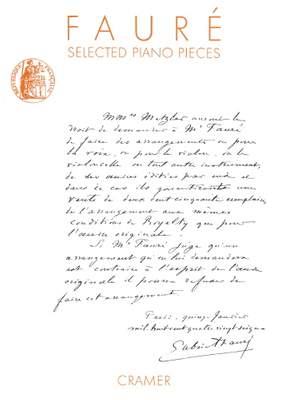 FAURÉ
SELECTED PIANO PIECES
MM. Metzler auront le
droit de demander à Mr Fauré
de faire des arrangements ou pour
la voix, ou pour le violon, ou le
violoncelle ou tout autre instrument,
de ses œuvres éditées par eux et
dans ce cas ils garantiront une
vente de deux cent cinquante exemplaires
de l'arrangement aux mêmes
conditions de Royalty que pour
l'œuvre originale.
Si Mr Fauré juge qu'un
arrangement qu'on lui demandera
est contraire à l'esprit de l'œuvre
originale il pourra refuser de
faire cet arrangement.
Paris, quinze Janvier
mil huit cent quatre vingt seize
Gabriel Fauré
CRAMER